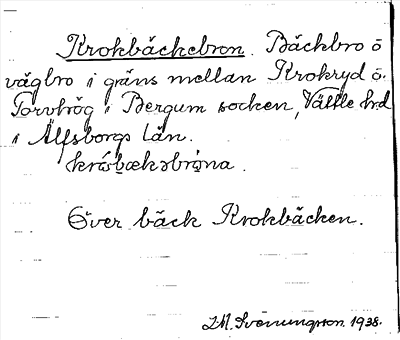 Krokbäckebron. Bäckbro o
vägbro i gräns mellan Krokryd o.
Torvhög i Bergum socken, Vättle hrd
i Älfsborgs län.
Över bäck Krokbäcken.
1938.